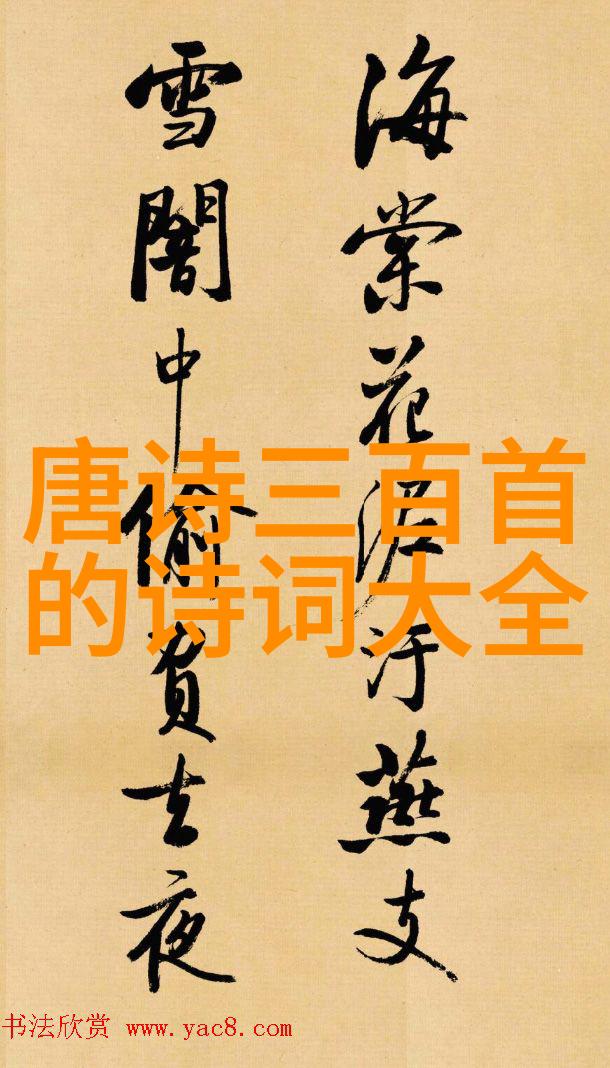 海棠花泥汙燕支
雪闇中偷負去夜
唐诗三百首
的诗词大全
书法欣赏 www.yac8.com